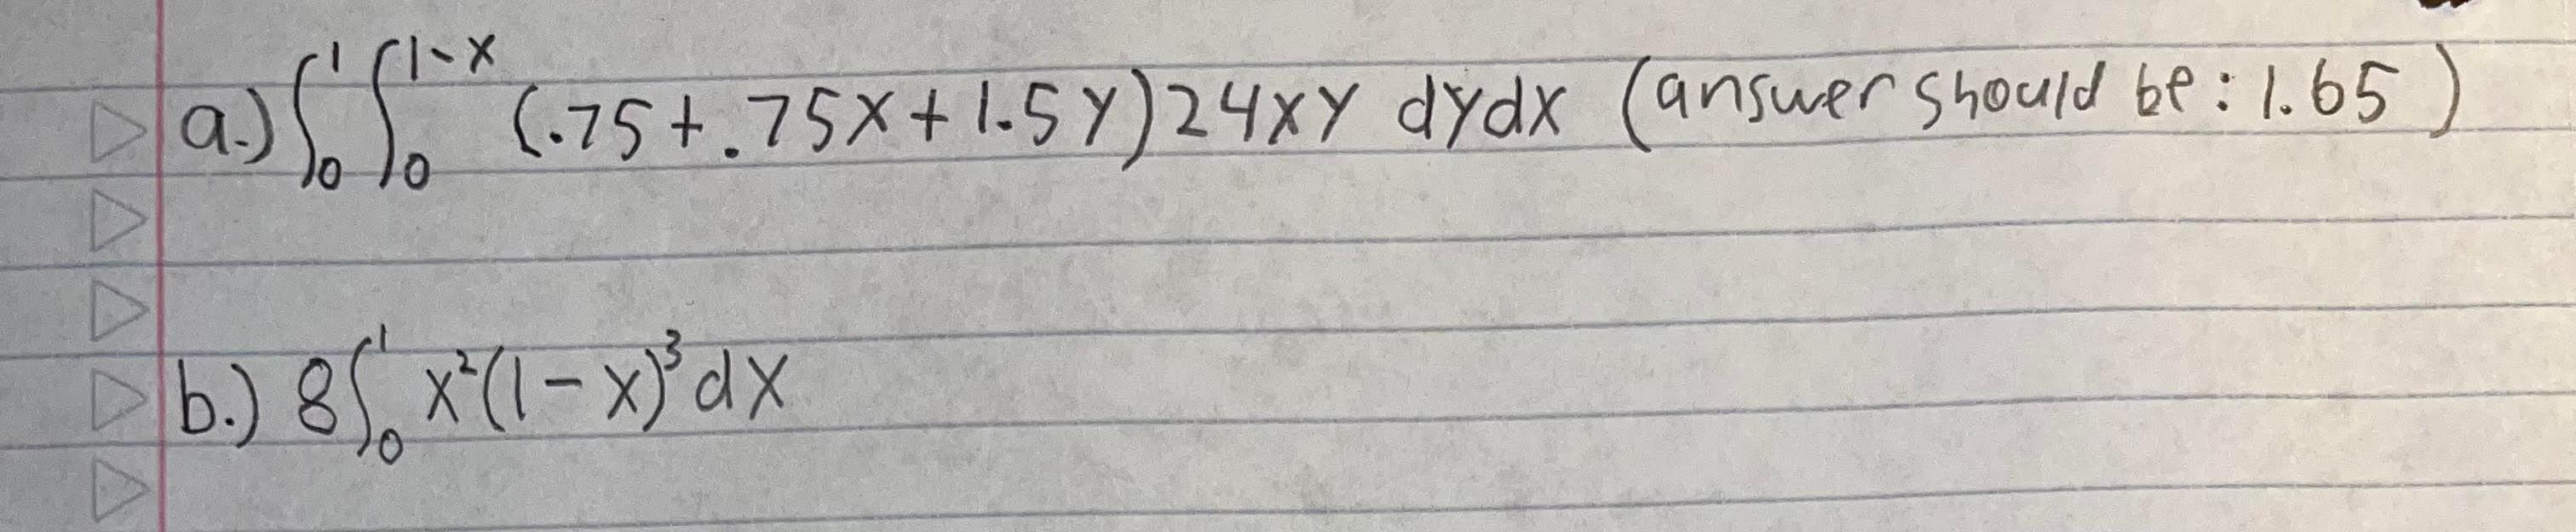 a.) ∫₀¹ ∫₀^(1-x) (.75 + .75x + 1.5y) 24xy dydx (answer should be: 1.65)
b.) 8∫₀¹ x²(1-x)³ dx